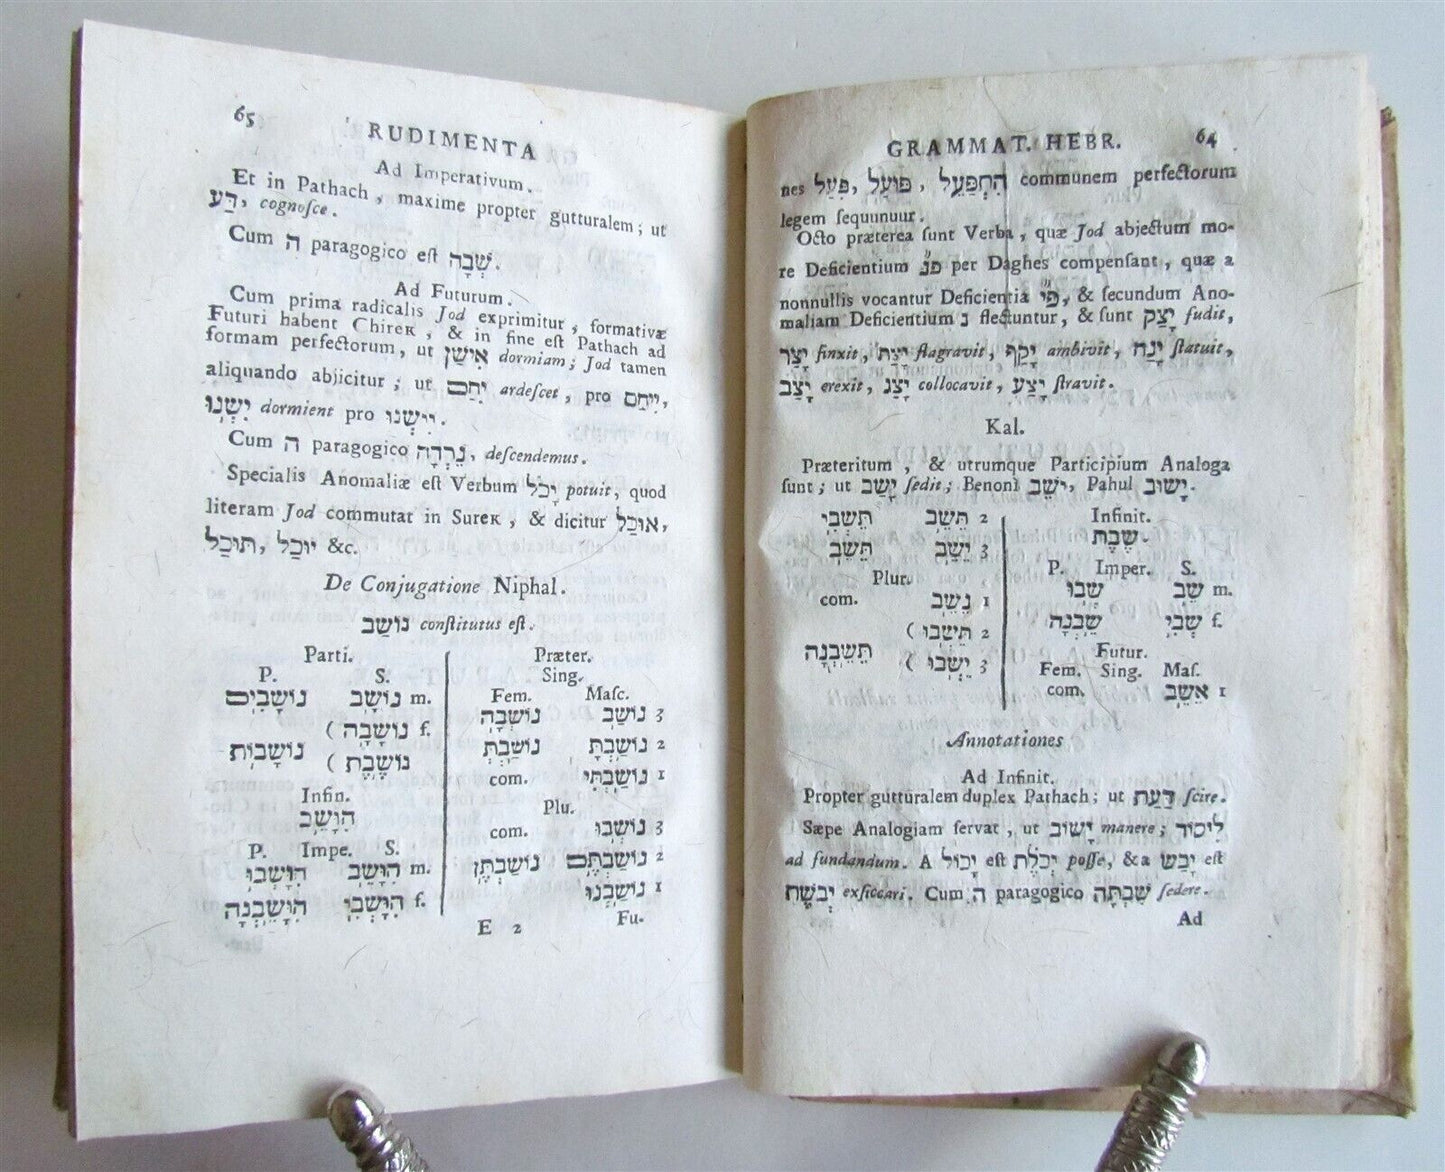 GRAMMAT. HEBR. 64
nes פִּעַל, פּוֹעַל, הִתְפַּעֵל communem perfectorum
legem sequunuur.
Octo præterea sunt Verba, quæ Jod abjectum mo-
re Deficientium פנ per Daghes compensant, quæ a
nonnullis vocantur Deficientia פי, & secundum Ano-
maliam Deficientium נ flectuntur, & sunt יָצַק fudit,
יָצַר finxit, יָצַת flagravit, יָקַף ambivit, יָנַח statuit,
יָצַב erexit, יָצַג collocavit, יָצַע stravit.
Kal.
Præteritum, & utrumque Participium Analoga
sunt; ut יָשַׁב sedit; Benoni יֹשֵׁב, Pahul יָשׁוּב.
Infinit.
שֶׁבֶת.
P. Imper. S.
שְׁבוּ שֵׁב m.
שֵׁבְנָה שְׁבִי f.
Futur.
Fem. Sing. Mas.
com. אֵשֵׁב 1
תֵּשְׁבִי תֵּשֵׁב 2
תֵּשֵׁב יֵשֵׁב 3
Plur.
com. נֵשֵׁב 1
תֵּשְׁבוּ ) 2
תֵּשֵׁבְנָה
יֵשְׁבוּ ) 3
Annotationes
Ad Infinit.
Propter gutturalem duplex Pathach; ut דַּעַת scire.
Sæpe Analogiam servat, ut יָשׁוֹב manere; לִיסוֹד
ad fundandum. A יָכוֹל est יְכֹלֶת posse, & a יָבֵשׁ est
יְבֹשֶׁת exsiccari. Cum ה paragogico שִׁבְתָּה sedere.
Ad
65 RUDIMENTA
Ad Imperativum.
Et in Pathach, maxime propter gutturalem; ut
דַּע, cognosce.
Cum ה paragogico est שְׁבָה.
Ad Futurum.
Cum prima radicalis Jod exprimitur, formativæ
Futuri habent Chirek, & in fine est Pathach ad
formam perfectorum, ut אִישַׁן dormiam; Jod tamen
aliquando abjicitur; ut יִחַם ardescet, pro יִיחַם,
יִשְׁנוּ dormient pro יִישְׁנוּ.
Cum ה paragogico נֵרְדָה, descendemus.
Specialis Anomaliæ est Verbum יָכֹל potuit, quod
literam Jod commutat in Surek, & dicitur אוּכַל,
תּוּכַל, יוּכַל &c.
De Conjugatione Niphal.
נוֹשַׁב constitutus est.
Præter.
Sing.
Fem. Masc.
נוֹשְׁבָה נוֹשַׁב 3
נוֹשַׁבְתְּ נוֹשַׁבְתָּ 2
com. נוֹשַׁבְתִּי 1
Plu.
com. נוֹשְׁבוּ 3
נוֹשַׁבְתֶּן נוֹשַׁבְתֶּם 2
נוֹשַׁבְנוּ 1
Parti.
P. S.
נוֹשָׁבִים נוֹשָׁב m.
נוֹשָׁבָה ) f.
נוֹשָׁבוֹת
נוֹשֶׁבֶת )
Infin.
הִוָּשֵׁב
P. Impe. S.
הִוָּשְׁבוּ הִוָּשֵׁב m.
הִוָּשֵׁבְנָה הִוָּשְׁבִי f.
E 2 Fu.